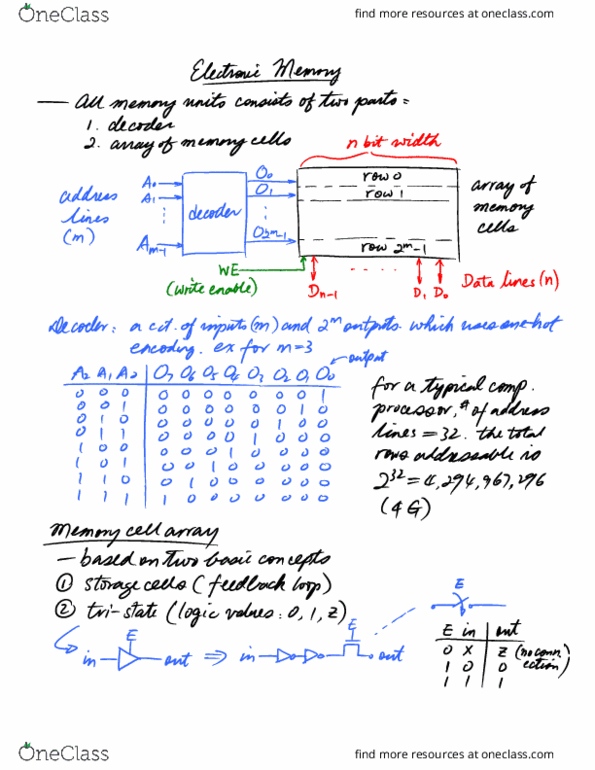 OneClass
find more resources at oneclass.com
Electronic Memory
— All memory units consists of two parts:
1. decoder
2. array of memory cells
n bit width
address
lines
(m)
A0
A1
Am-1
decoder
O0
O1
O2^m-1
row 0
row 1
row 2^m-1
array of
memory
cells
WE
(write enable)
Dn-1
D1 D0
Data lines (n)
Decoder: a cct. of inputs (m) and 2^m outputs. which uses one-hot
encoding. ex for m=3
output
A2 A1 A0 O7 O6 O5 O4 O3 O2 O1 O0
0 0 0 0 0 0 0 0 0 0 1
0 0 1 0 0 0 0 0 0 1 0
0 1 0 0 0 0 0 0 1 0 0
0 1 1 0 0 0 0 1 0 0 0
1 0 0 0 0 0 1 0 0 0 0
1 0 1 0 0 1 0 0 0 0 0
1 1 0 0 1 0 0 0 0 0 0
1 1 1 1 0 0 0 0 0 0 0
for a typical comp.
processor, # of address
lines = 32. the total
rows addressable is
2^32 = 4,294,967,296
(4 G)
Memory cell array
— based on two basic concepts
① storage cells (feedback loop)
② tri-state (logic values: 0, 1, Z)
E
in
out
⇒
in
E
out
E
E in out
0 X Z (no conn-
1 0 0 ection)
1 1 1
OneClass
find more resources at oneclass.com